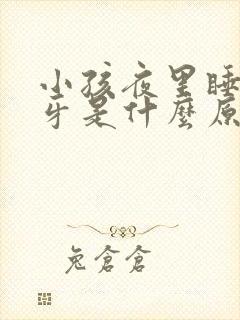 小孩夜里睡
牙是什麼原
兔倉倉